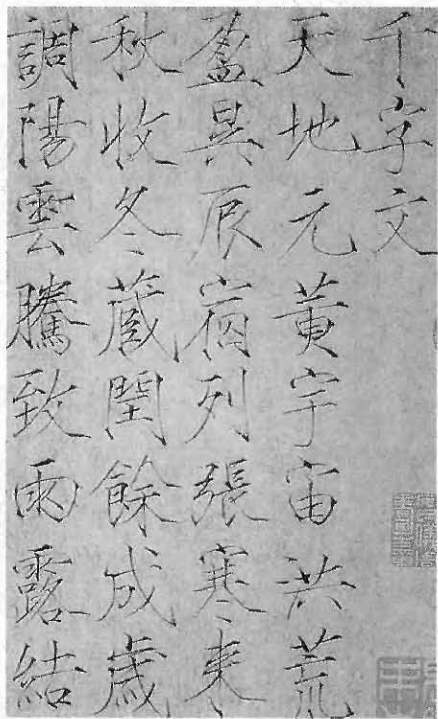 千字文
天地元黄宇宙洪荒
盈昃辰宿列張寒来
秋收冬蔵閏餘成歳
調陽雲騰致雨露結